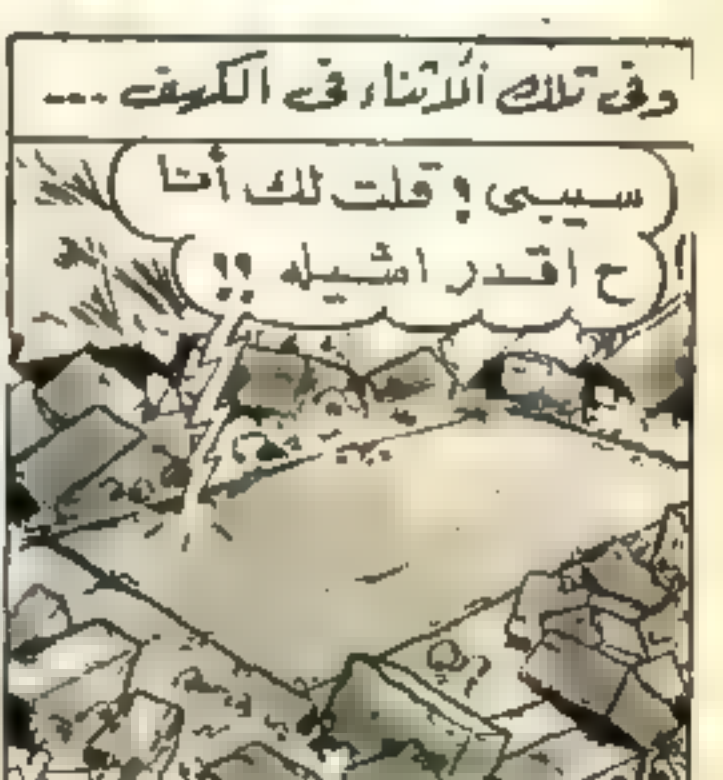 وفى تلك الأثناء فى الكهف ...
سيبى ! قلت لك أنا
ح اقدر اشيله !!